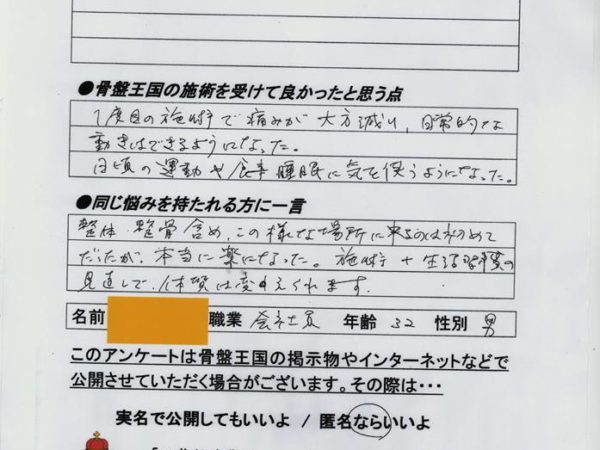 ●骨盤王国の施術を受けて良かったと思う点
1度目の施術で痛みが大方減り、日常的な
動きはできるようになった。
日頃の運動や食事睡眠に気を使うようになった。
●同じ悩みを持たれる方に一言
整体、整骨含め、この様な場所に来るのは初めて
だったが、本当に楽になった。施術+生活習慣の
見直しで、体質は変わえられます。
名前 職業 会社員 年齢 32 性別 男
このアンケートは骨盤王国の掲示物やインターネットなどで
公開させていただく場合がございます。その際は・・・
実名で公開してもいいよ / 匿名ならいいよ